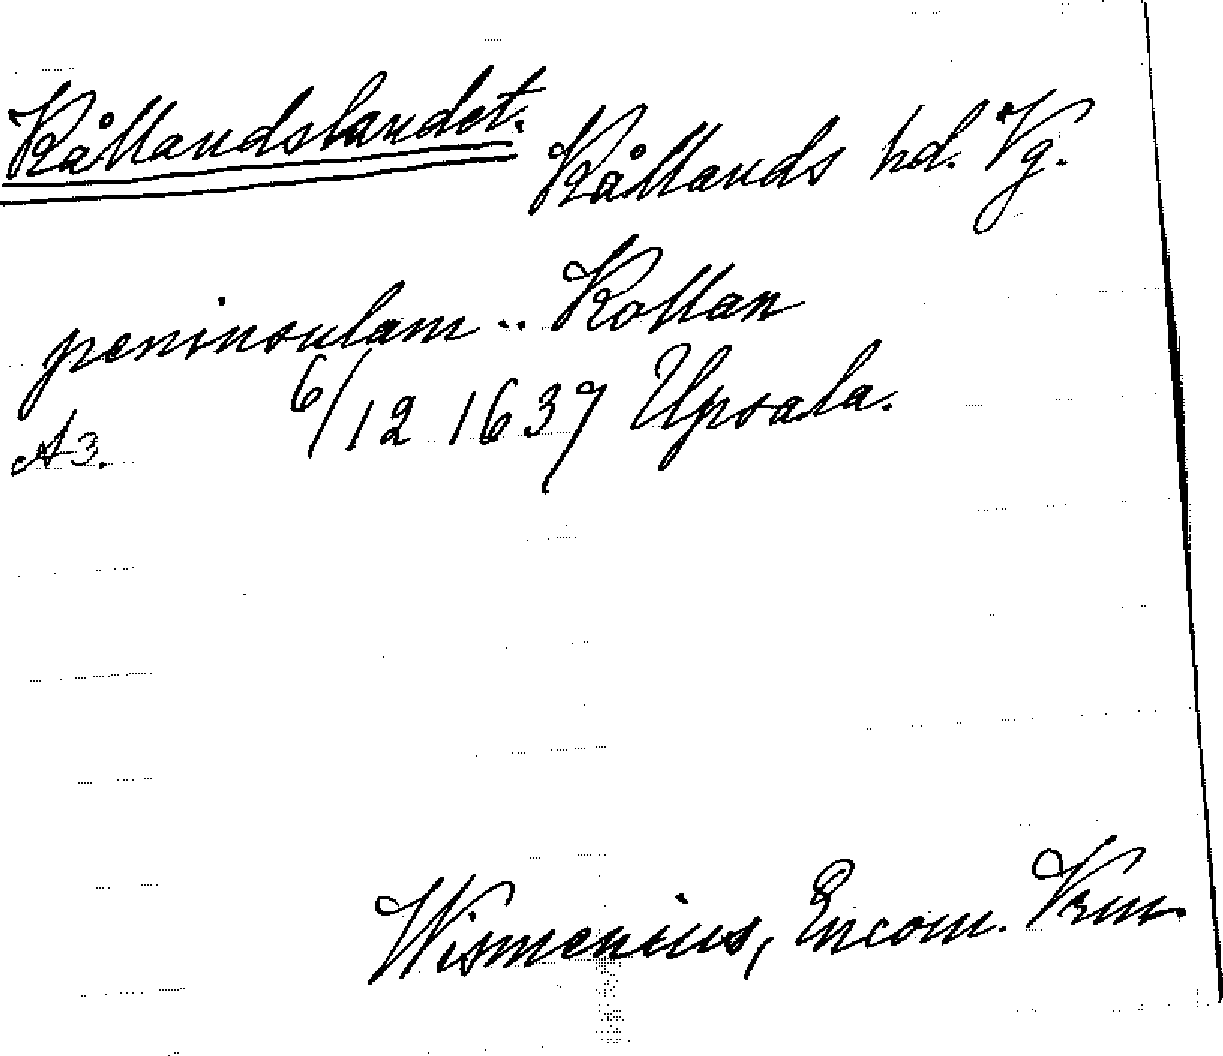 Kållandslandet. Kållands hd. Vg.
peninsulam .. Kollan
A3. 6/12 1637 Upsala.
Wismenius, Encom. Vrm.